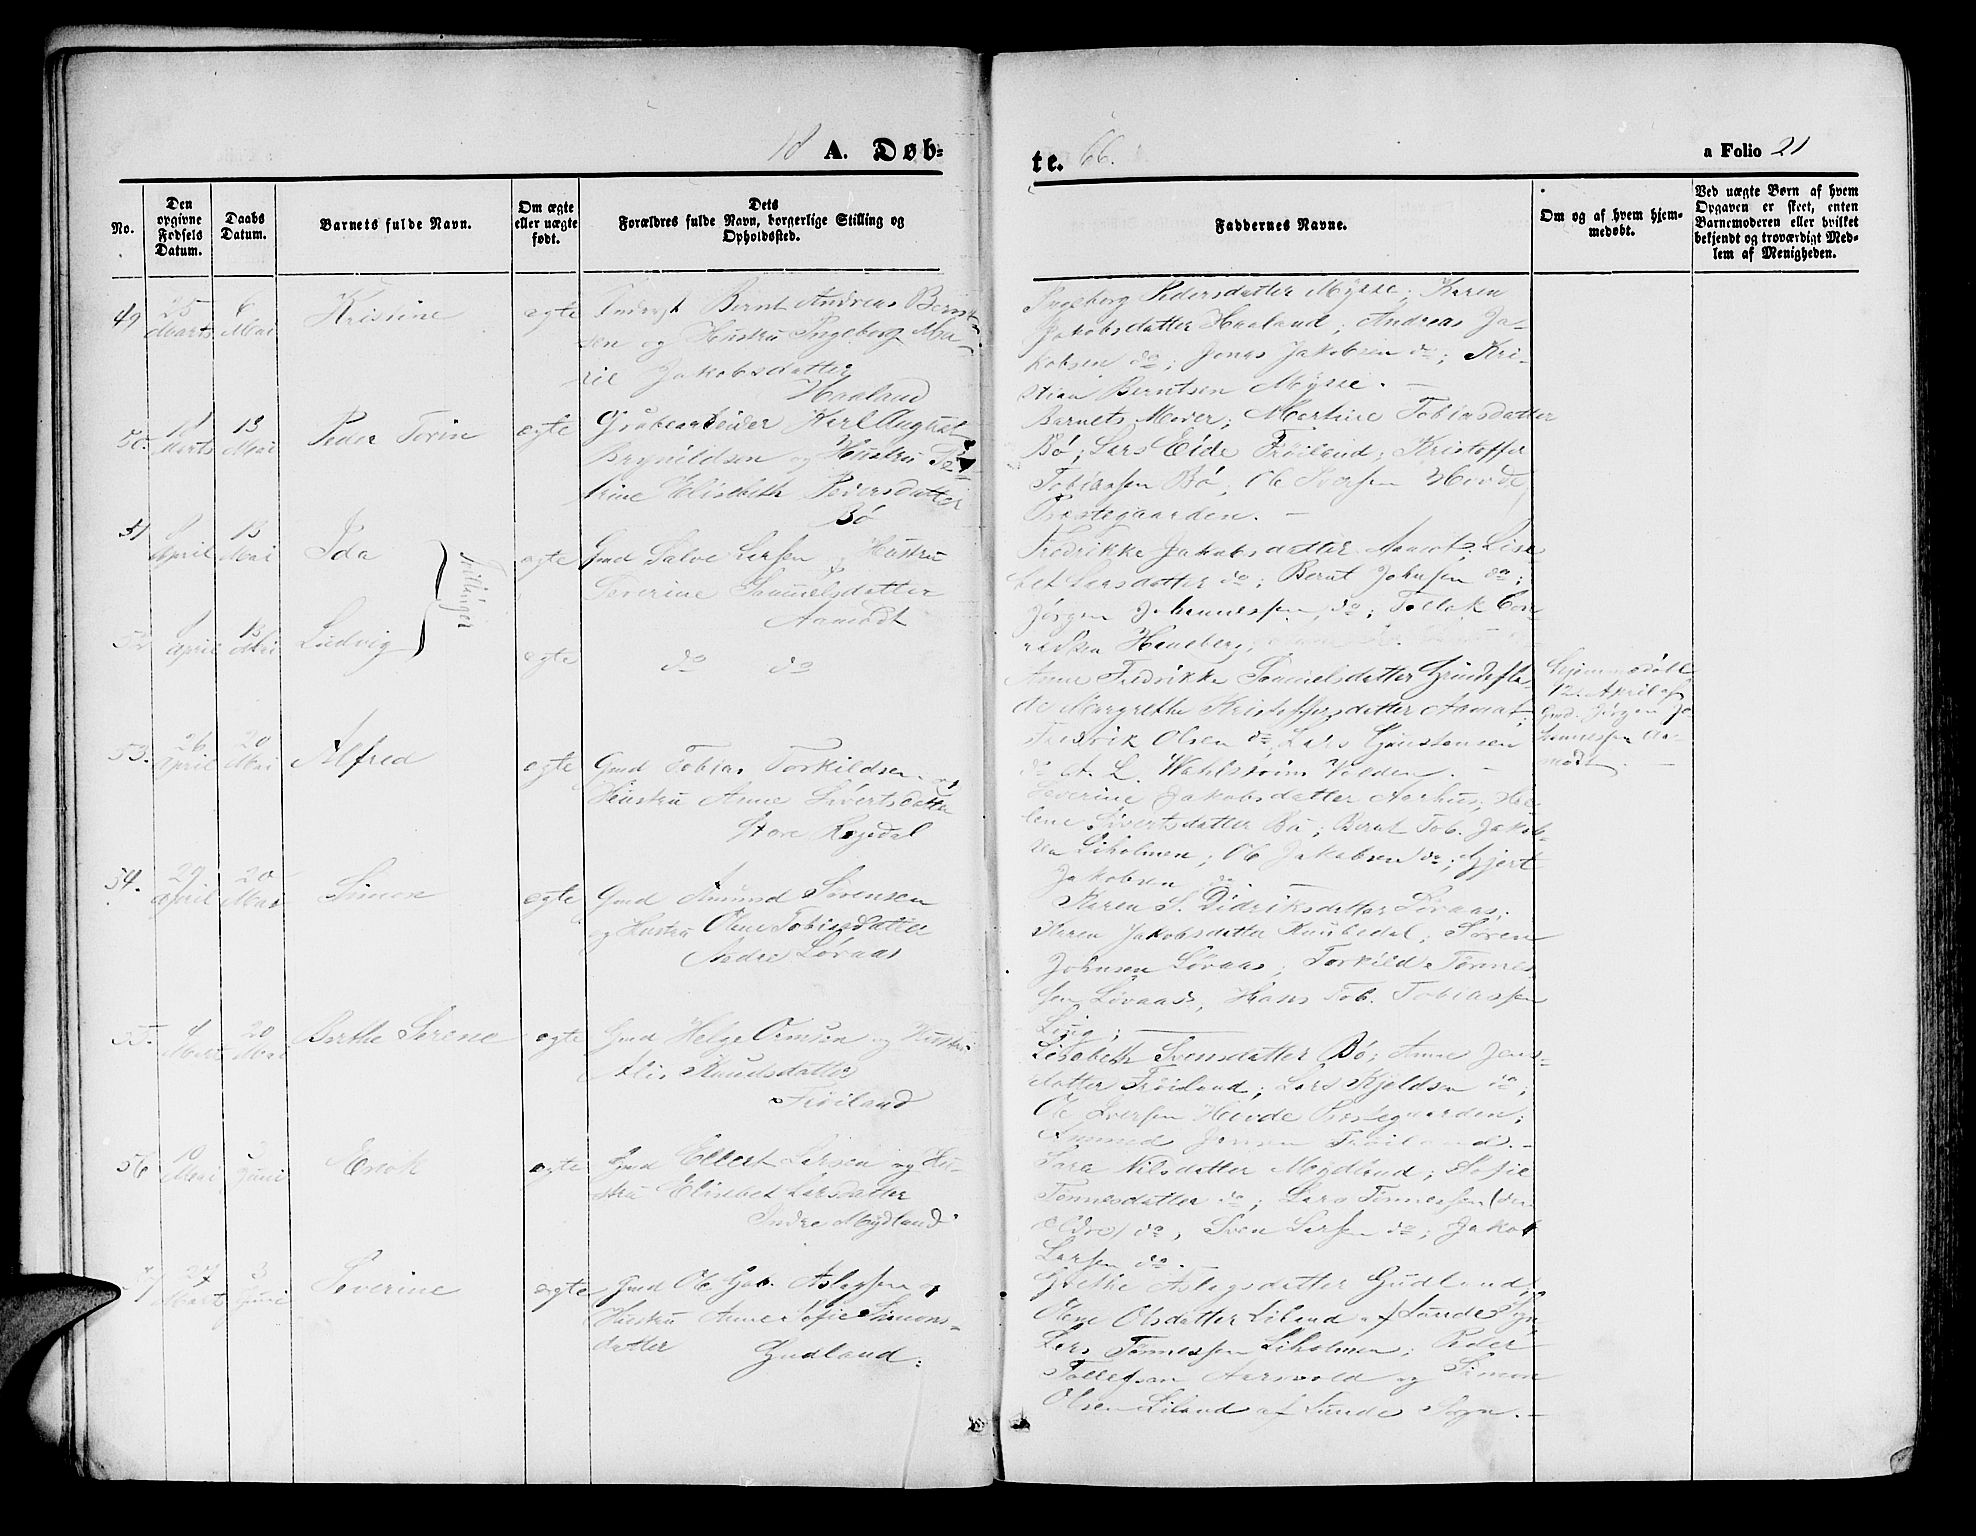 18 A. Døb-
te. 66.
a Folio 21
No.
Den opgivne Fødsels Datum.
Daabs Datum.
Barnets fulde Navn.
Om ægte eller uægte født.
Dets
Forældres fulde Navn, borgerlige Stilling og
Opholdssted.
Faddernes Navne.
Om og af hvem hjem-
medøbt.
Ved uægte Børn af hvem
Opgaven er skeet, enten
Barnemoderen eller hvilket
bekjendt og troværdigt Med-
lem af Menigheden.
49 25 Marts 6 Mai Kristine egte Bernt Andreas Bernt-
sen og Hustru Ingeborg Ma-
Jakobsdatter
Haaland
Ingeborg Pedersdatter Mysse; Karen
Jakobsdatter Haaland; Andreas Ja-
kobsen do; Jonas Jakobsen do; Kri-
stian Berntsen Mysse. -
50. Marts 13 Mai Peder Torin egte Karl August
Brynildsen og Hustru
Elisbeth Pedersdatter
Bø
Barnets Moder; Martine Tobiasdatter
Bø; Lars Eide Frøiland; Kristoffer
Tobiassen Bø; Ole Iversen Hovde
Præstegaarden. -
51 8 April 13 Mai Ida egte Gmd Salve Larsen og Hustru
Severine Samuelsdatter
Aamodt
Tvillinger
Fredrikke Jakobsdatter Aamot; Lise-
bet Larsdatter do; Bernt Johnsen do;
Jørgen Johannessen do; Tollak
Heneberg;
52 8 April 13 Mai Ludvig egte do do
Anne Fredrikke Samuelsdatter
Margrethe Kristoffersdatter Aamot;
Fredrik Olsen do; Lars Gunstensen
do A. L. Wahlstrøm Volden. -
Hjemmedøbt
12 April af
Gmd. Jørgen Jo-
hannessen Aa-
modt. -
53. 26 April 20 Mai Alfred egte Gmd Tobias Torkildsen og
Hustru Anne Sivertsdatter
Store Rægedal
Severine Jakobsdatter Aarhus; He-
lene Sivertsdatter Bø; Bernt Tob. Jakob-
sen Liholmen; Ole Jakobsen do; Gjert
Jakobsen do. -
54. 29 April 20 Mai Simon egte Gmd Amund Sørensen
og Hustru Olene Tobiasdatter
Nedre Løvaas
Karen S. Didriksdatter Løvaas;
Karen Jakobsdatter Knubedal; Søren
Johnsen Løvaas; Torkild Tønnes-
sen Løvaas; Hans Tob. Tobiassen
55. 4 Marts 20 Mai Berthe Serene egte Gmd Helge Omsen og Hustru
Alis Knudsdatter
Frøiland
Lisabeth Svensdatter Bø; Anne Jens-
datter Frøiland; Lars Kjeldsen do;
Ole Iversen Hovde Præstegaarden;
Amund Jensen Frøiland. -
56 10 Mai 3 Juni Enok egte Gmd Elbert Larsen og Hu-
stru Elisabet Larsdatter
Indre Mydland
Sara Nilsdatter Mydland; Sofie
Tønnesdatter do; Lars Tønnessen (den
eldre) do; Sven Larsen do; Jakob
Larsen do. -
57 27 Marts 3 Juni Severine egte Gmd Ole Gab. Aslagsen og
Hustru Anne Sofie Simons-
datter Gudland.
Grethe Aslagsdatter Gudland;
Olene Olsdatter Liland af Lunde Sogn
Lars Tønnessen Liholmen; Peder
Tollefsen Aarsvold og Simon
Olsen Liland af Lunde Sogn. -